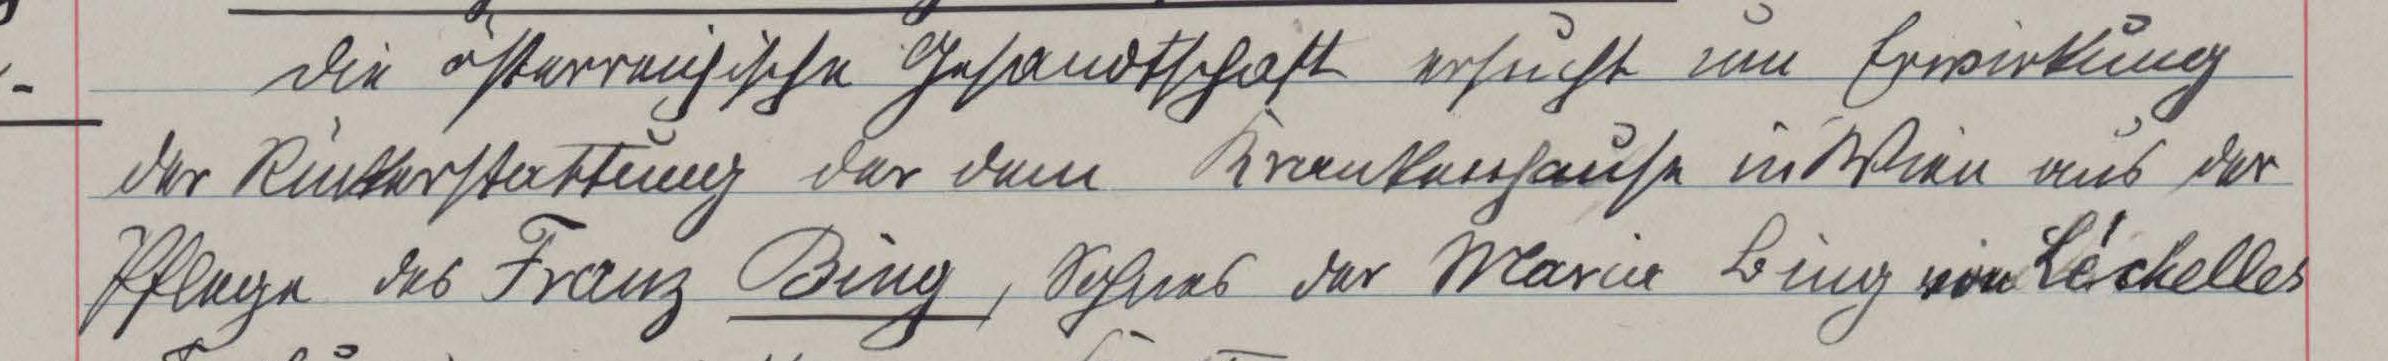 Die österreichische Gesandtschaft ersucht um Erwirkung
der Rückerstattung der dem Krankenhause in Wien aus der
Pflege des Franz Bing, Sohnes der Maria Bing von Léchelles